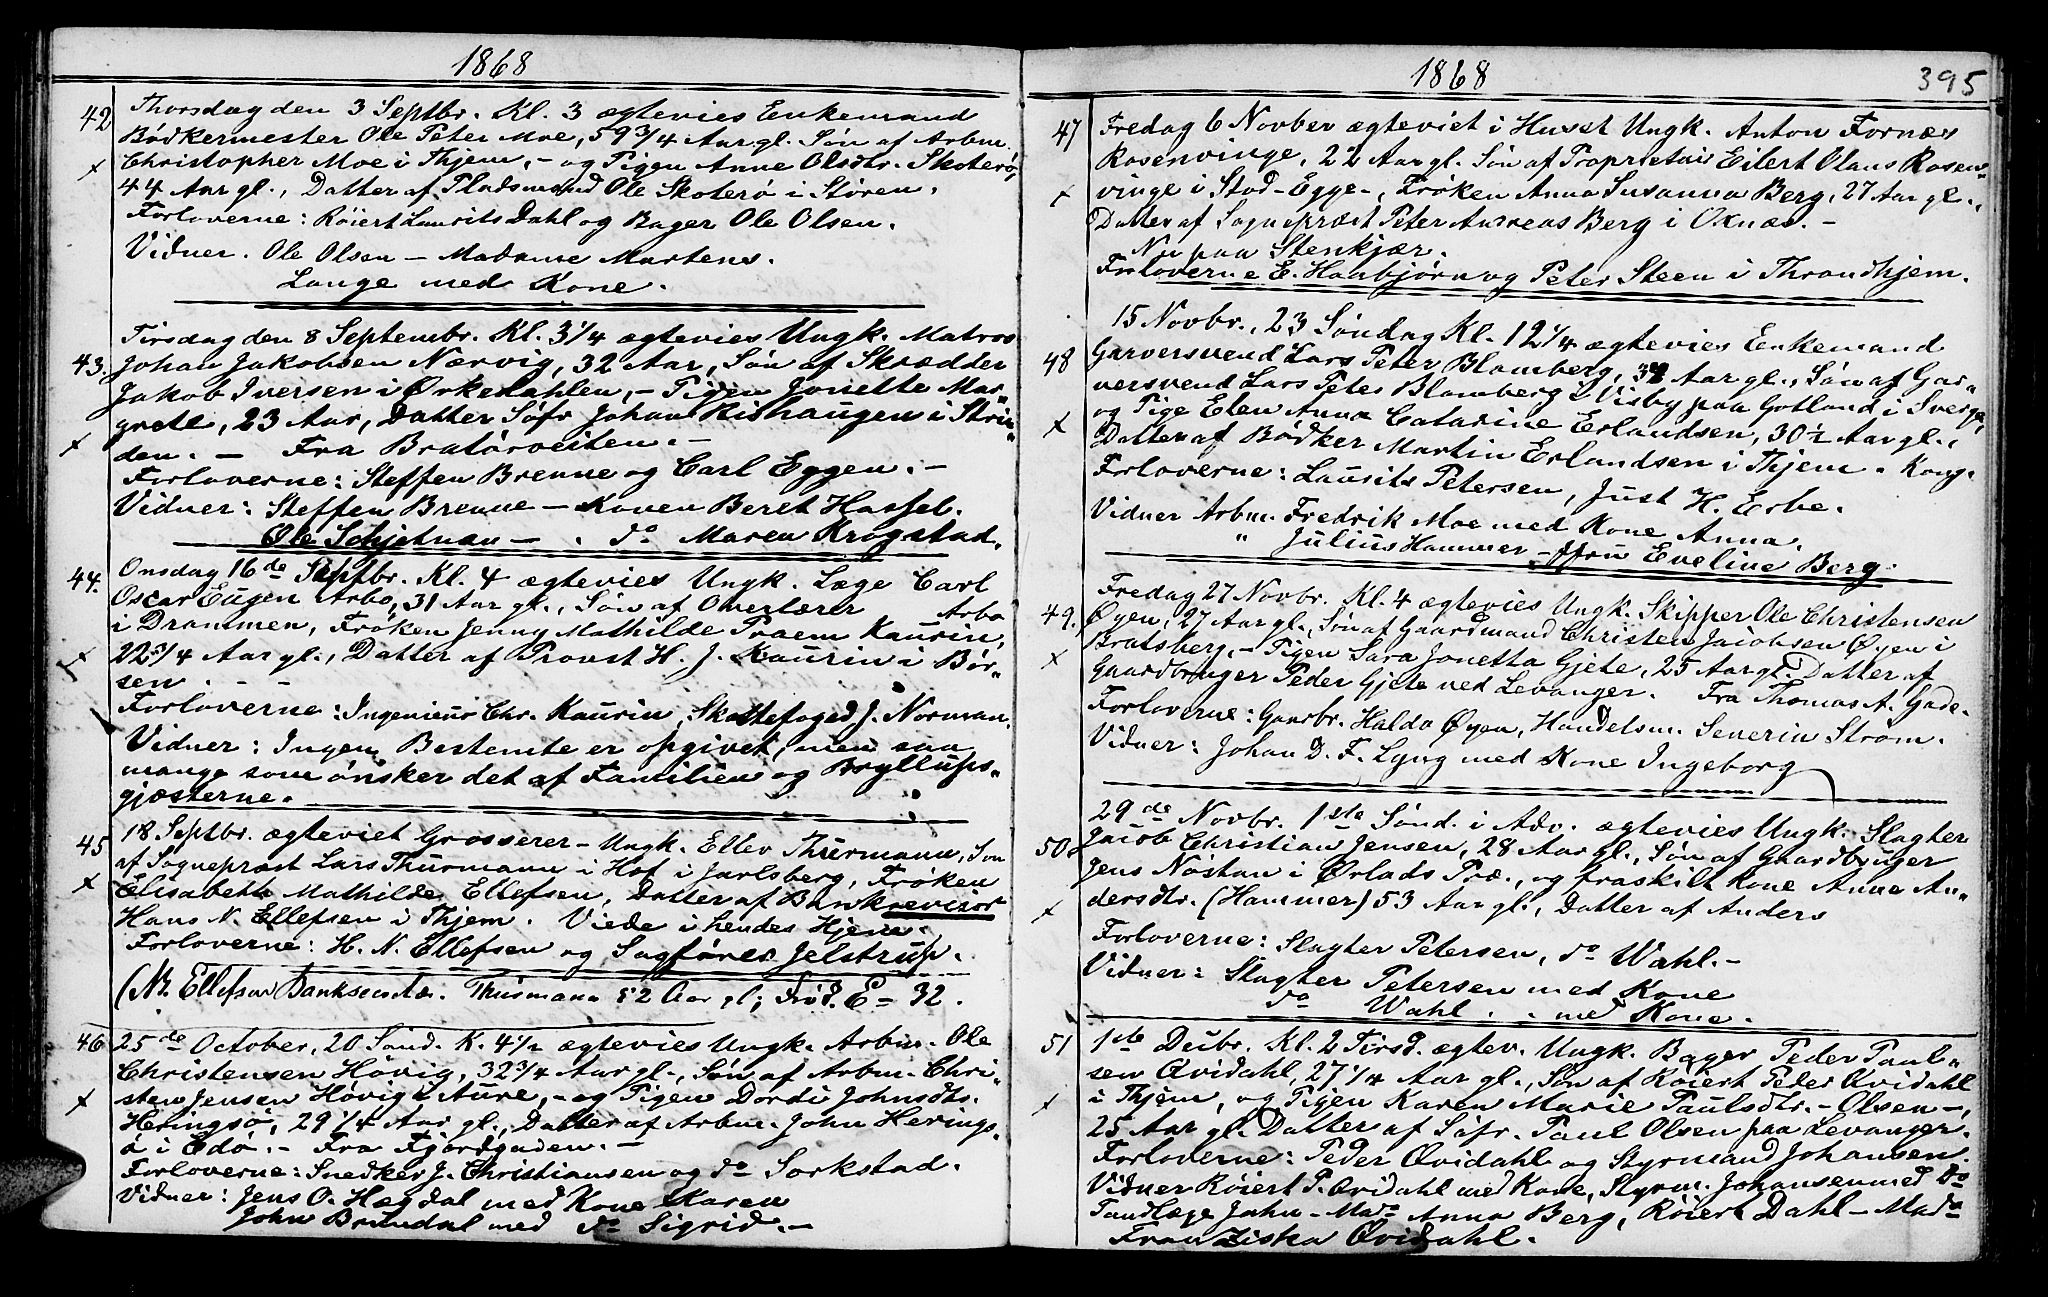 1868
42 Thorsdag den 3 Septbr. Kl. 3 ægtevies Enkemand
Bødkermester Ole Peter Moe, 59 3/4 Aar gl. Søn af Arbm.
x Christopher Moe i Thjem, - og Pigen Anne Olsdtr. Skoterø,
44 Aar gl., Datter af Pladsmand Ole Skoterø i Støren.
Forloverne: Røiert Laurits Dahl og Bager Ole Olsen.
Vidner. Ole Olsen - Madame Martens.
Lange med Kone.
Tirsdag den 8 Septembr. Kl. 3 1/4 ægtevies Ungk. Matros
43. Johan Jakobsen Nærvig, 32 Aar, Søn af Skrædder
Jakob Iversen i Ørkedahlen, - Pigen Jonette Mar-
grete, 23 Aar, Datter Søfr Johan Rishaugen i Strin-
x den. - Fra Bratørveiten. -
Forloverne: Steffen Brenne og Carl Eggen. -
Vidner: Steffen Brenne - Konen Beret Hassel.
Ole Schjetnan - . do Maren Krogstad.
44. Onsdag 16de Septbr. Kl. 4 ægtevies Ungk. Læge Carl
Oscar Eugen Arbo, 31 Aar gl., Søn af Overtærer Arbo
i Drammen, Frøken Jenny Mathilde Praem Kaurin,
x 22 3/4 Aar gl., Datter af Provst H. J. Kaurin i Bør-
sen.
Forloverne: Ingenieur Chr. Kaurin, Skattefoged J. Norman.
Vidner: Ingen Bestemte er opgivet, men saa
mange som ønsker det af Familien og Bryllups-
gjæsterne.
45 18 Septbr. ægteviet Grosserer - Ungk. Ellev Thurmann, Søn
af Sogneprøst Lars Thurmann i Hof i Jarlsberg, Frøken
x Elisabeth Mathilde Ellefsen, Datter af Bankrevisor
Hans N. Ellefsen i Thjem. Viede i hendes Hjem.
Forloverne: H. N. Ellefsen og Sagfører Jelstrup.
(N. Ellefsen Thurmann 52 Aar gl; Frø. E = 32.
46 25de October, 20 Sønd. K. 4 1/2 ægtevies Ungk. Arbm. Ole
Christensen Høvig, 32 3/4 Aar gl., Søn af Arbm. Chri-
x sten Jensen Høvig i Aure, - og Pigen Dordi Johnsdtr.
Heringsø, 29 1/4 Aar gl., Datter af Arbm. John Herings-
ø i Edø. - Fra Fjordgaden. -
Forloverne: Snedker J. Christiansen og do Sorkstad.
Vidner: Jens O. Hægdal med Kone Karen
John Brundal med do Sigrid. -
1868 395
47 Fredag 6 Novber ægteviet i Huset Ungk. Anton Fornæs
Rosenvinge, 22 Aar gl. Søn af Proprietair Eilert Olaus Rosen-
x vinge i Stod - Egge -, Frøken Anna Susanna Berg, 27 Aar gl.,
Datter af Sogneprøst Peter Andreas Berg i Oxnæs. -
Nu paa Stenkjær.
Forloverne E. Haabjørn og Peter Steen i Throndhjem.
15 Novbr., 23 Søndag Kl. 12 1/4 ægtevies Enkemand
48 Garversvend Lars Peter Blomberg, Aar gl., Søn af Gar-
versvend Lars Peter Blomberg i Visby paa Gotland i Sverge,
x og Pige Elen Anna Catarine Erlandsen, 30 1/2 Aar gl.,
Datter af Bødker Martin Erlandsen i Thjem. Kong-
Forloverne: Laurits Petersen, Just H. Erbe.
Vidner Arbm. Fredrik Moe med Kone Anna.
" Julius Hammer - Jfru Eveline Berg.
Fredag 27 Novbr. Kl. 4 ægtevies Ungk. Skipper Ole Christensen
49. Øyen, 27 Aar gl., Søn af Gaardmand Christen Jacobsen Øyen i
x Bratsberg, - Pigen Sara Jonetta Gjete, 25 Aar gl. Datter af
Gaardbruger Peder Gjete ved Levanger. Fra Thomas A. Gade.
Forloverne: Gaarbr. Haldo Øyen, Handelsm. Severin Strøm.
Vidner: Johan D. F. Lyng med Kone Ingeborg
29de Novbr. 1ste Sønd. i Adv. ægtevies Ungk. Slagter
50 Jacob Christian Jensen, 28 Aar gl., Søn af Gaardbruger
Jens Nøstan i Ørlads Præ., og fraskilt Kone Anne An-
x dersdtr. (Hammer) 53 Aar gl., Datter af Anders
Forloverne: Slagter Petersen, do Wahl. -
Vidner: Slagter Petersen med Kone
do Wahl. - med Kone.
51 1ste Decbr. Kl. 2 Tirsd. ægtev. Ungk. Bager Peder Paul-
sen Qvidahl, 27 1/4 Aar gl., Søn af Røiert Peder Qvidahl
x i Thjem, og Pigen Karen Marie Paulsdtr. - Olsen -,
25 Aar gl. Datter af Søfr. Paul Olsen paa Levanger.
Forloverne: Peder Qvidahl og Styrmand Johansen.
Vidner Røiert P. Qvidahl med Kone, Styrm. Johansen med do
Tandlæge Jahn - Mad. Anna Berg, Røiert Dahl - Mad.
Franziska Qvidahl.